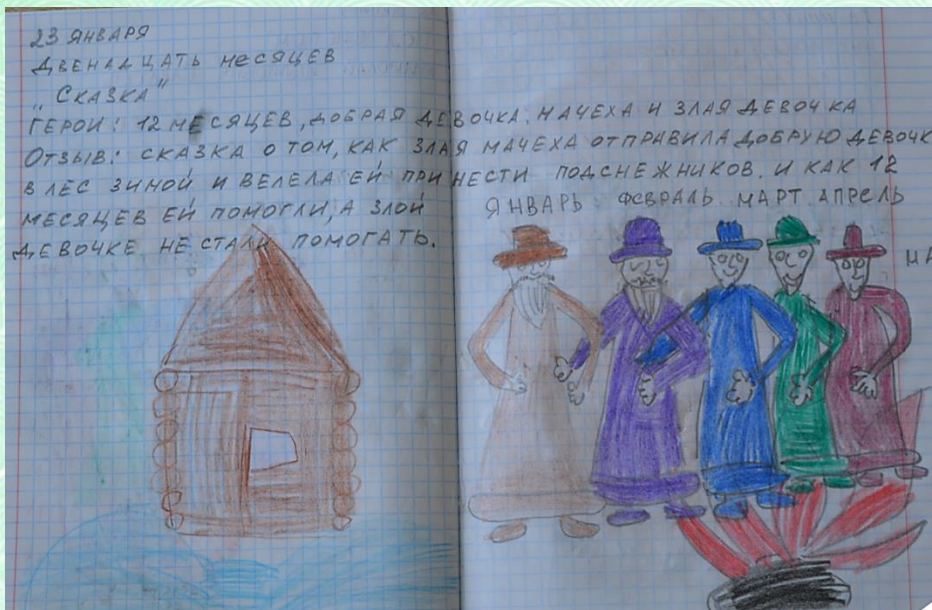 23 ЯНВАРЯ
ДВЕНАДЦАТЬ МЕСЯЦЕВ
"СКАЗКА"
ГЕРОИ: 12 МЕСЯЦЕВ, ДОБРАЯ ДЕВОЧКА, МАЧЕХА И ЗЛАЯ ДЕВОЧКА
ОТЗЫВ: СКАЗКА О ТОМ, КАК ЗЛАЯ МАЧЕХА ОТПРАВИЛА ДОБРУЮ ДЕВОЧК
В ЛЕС ЗИМОЙ И ВЕЛЕЛА ЕЙ ПРИНЕСТИ ПОДСНЕЖНИКОВ. И КАК 12
МЕСЯЦЕВ ЕЙ ПОМОГЛИ, А ЗЛОЙ
ДЕВОЧКЕ НЕ СТАЛИ ПОМОГАТЬ.
ЯНВАРЬ ФЕВРАЛЬ МАРТ АПРЕЛЬ
МА